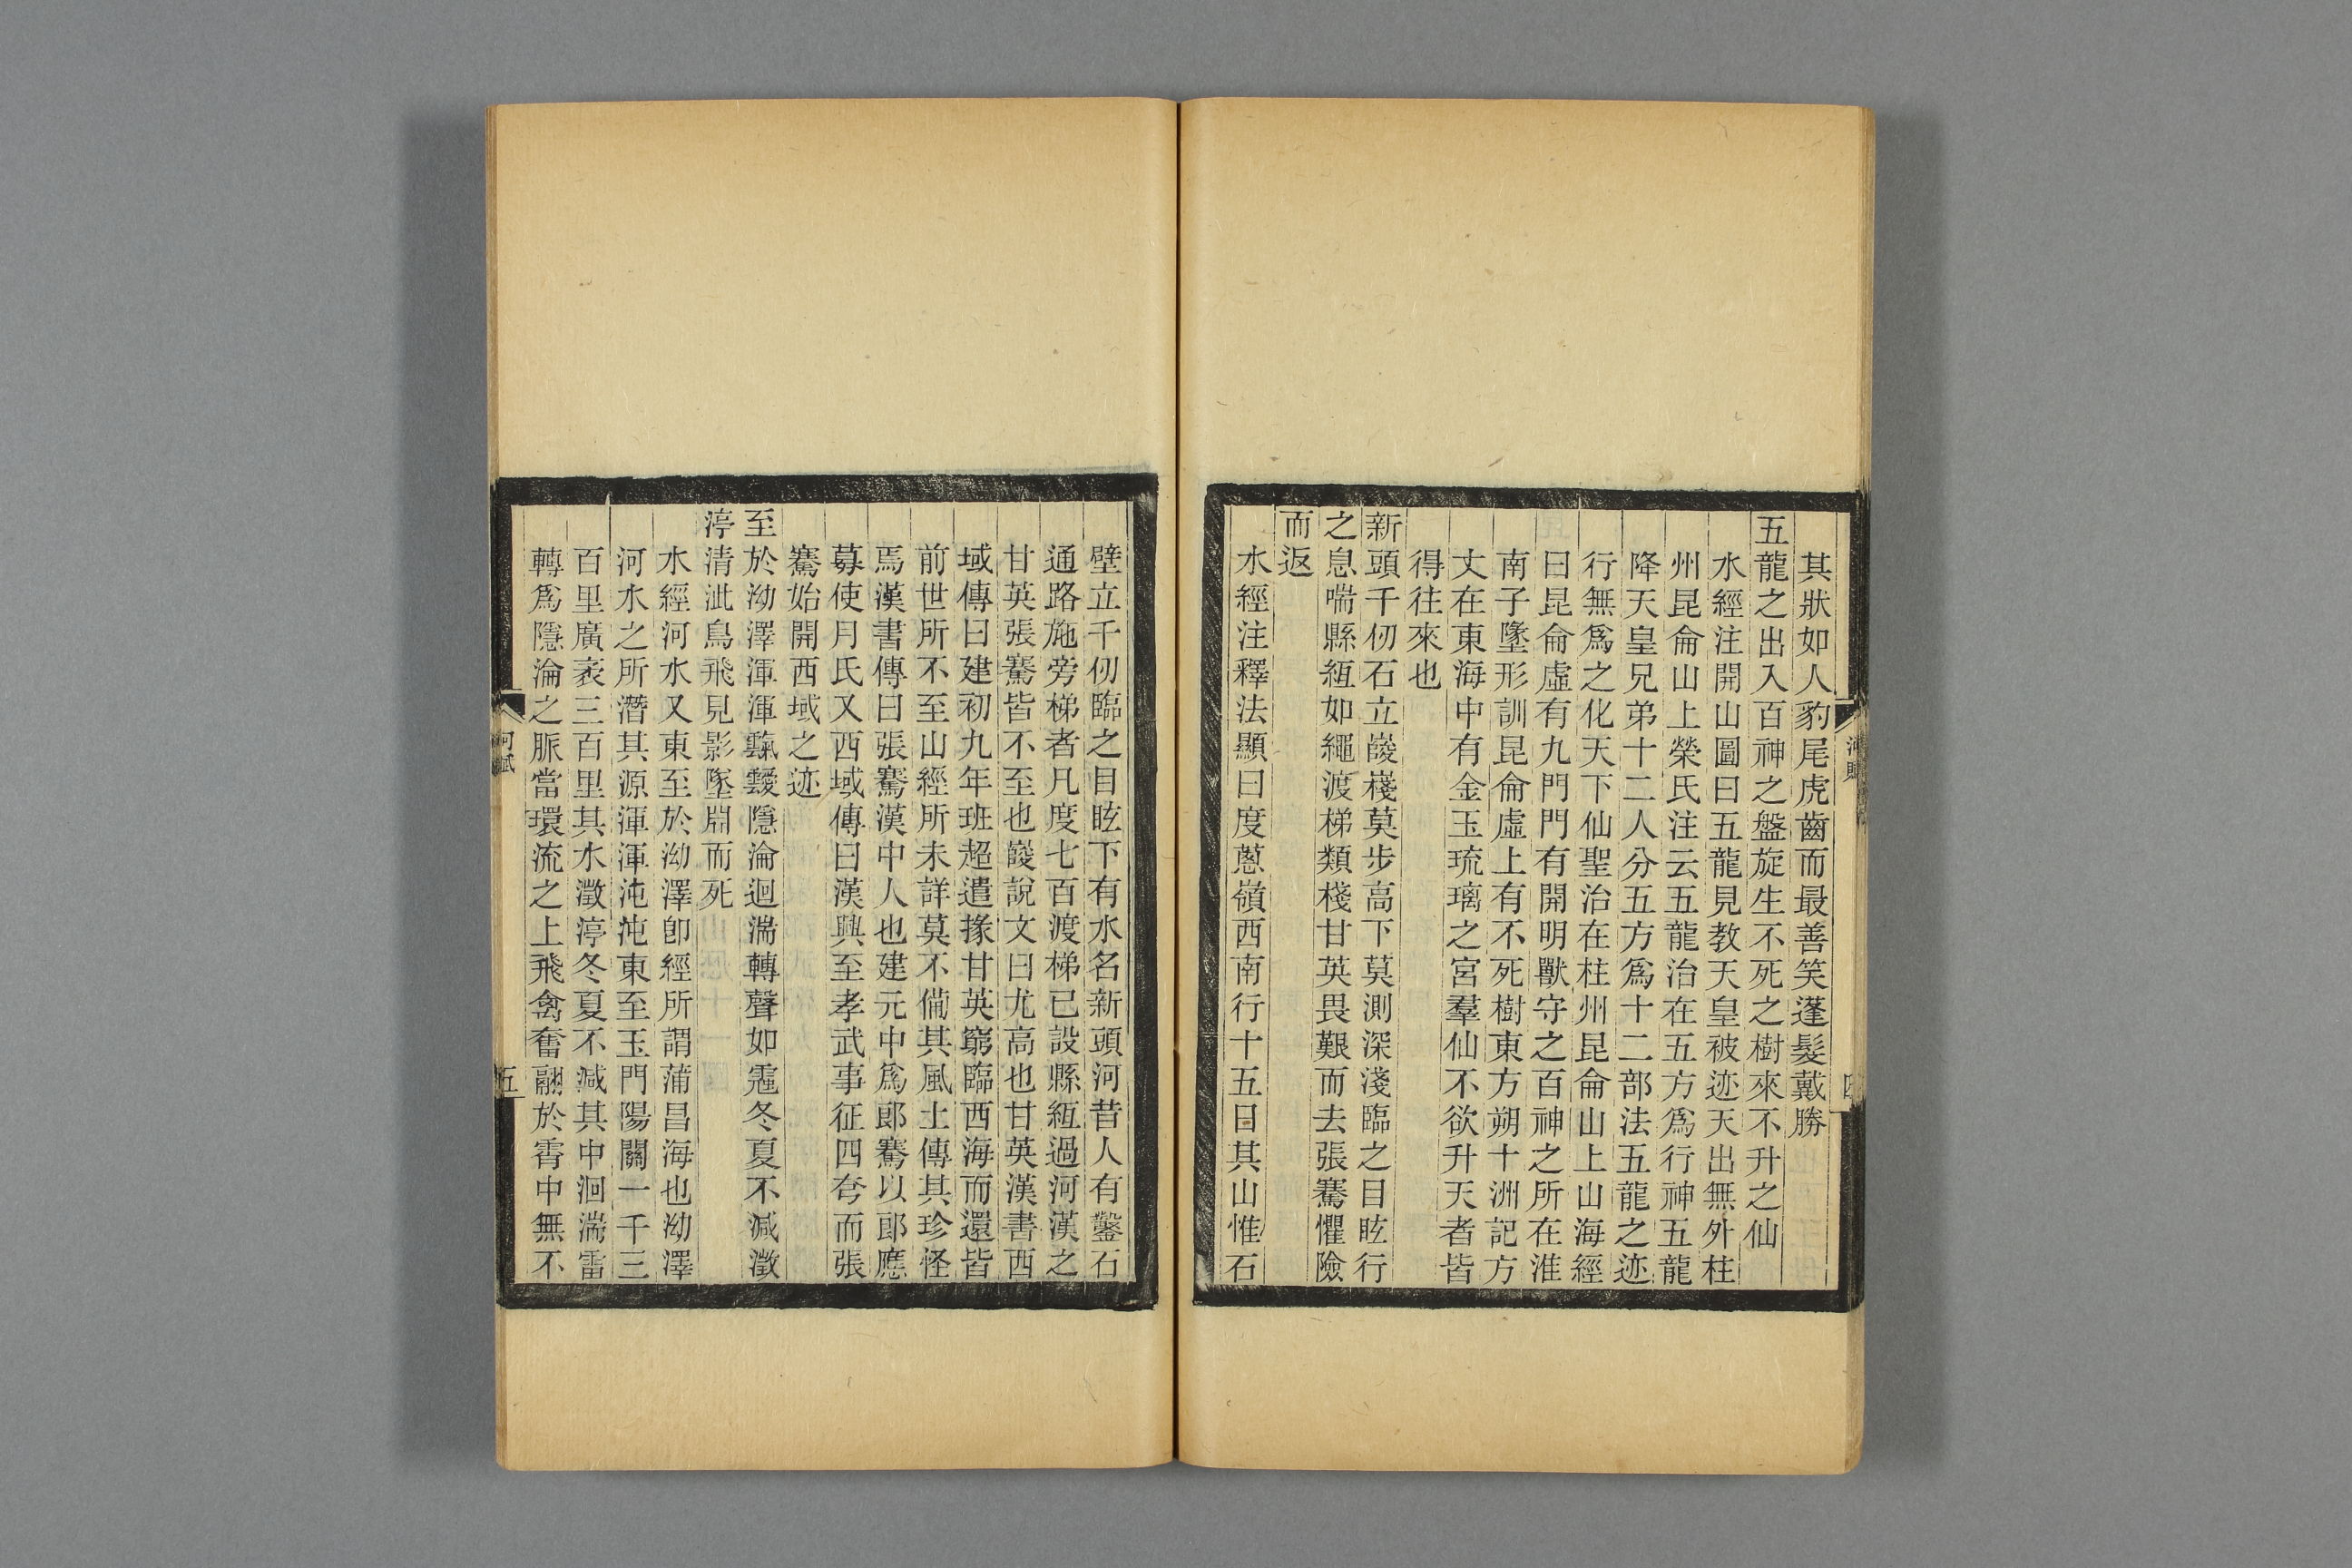 其狀如人豹尾虎齒而最善笑蓬髮戴勝
五龍之出入百神之盤旋生不死之樹來不升之仙
水經注開山圖曰五龍見教天皇被迹天出無外柱
州昆侖山上榮氏注云五龍治在五方爲行神五龍
降天皇兄弟十二人分五方爲十二部法五龍之迹
行無爲之化天下仙聖治在柱州昆侖山上山海經
曰昆侖虛有九門門有開明獸守之百神之所在淮
南子墬形訓昆侖虛上有不死樹東方朔十洲記方
丈在東海中有金玉琉璃之宮羣仙不欲升天者皆
得往來也
新頭千仞石立崚嶘莫步高下莫測深淺臨之目眩行
之息喘縣絙如繩渡梯類棧甘英畏艱而去張騫懼險
而返
水經注釋法顯曰度蔥嶺西南行十五日其山惟石
河賦
四
壁立千仞臨之目眩下有水名新頭河昔人有鑿石
通路施旁梯者凡度七百渡梯已設縣絙過河漢之
甘英張騫皆不至也崚說文曰尤高也甘英漢書西
域傳曰建初九年班超遣掾甘英窮臨西海而還皆
前世所不至山經所未詳莫不僃其風土傳其珍怪
焉漢書傳曰張騫漢中人也建元中爲郎騫以郎應
募使月氏又西域傳曰漢興至孝武事征四夸而張
騫始開西域之迹
至於泑澤渾渾靉靆隱淪迴湍轉聲如霆冬夏不減澂
渟清泚鳥飛見影墜淵而死
水經河水又東至於泑澤卽經所謂蒲昌海也泑澤
河水之所潛其源渾渾沌沌東至玉門陽關一千三
百里廣袤三百里其水澂渟冬夏不減其中洄湍雷
轉爲隱淪之脈當環流之上飛禽奮翮於霄中無不
河賦
五